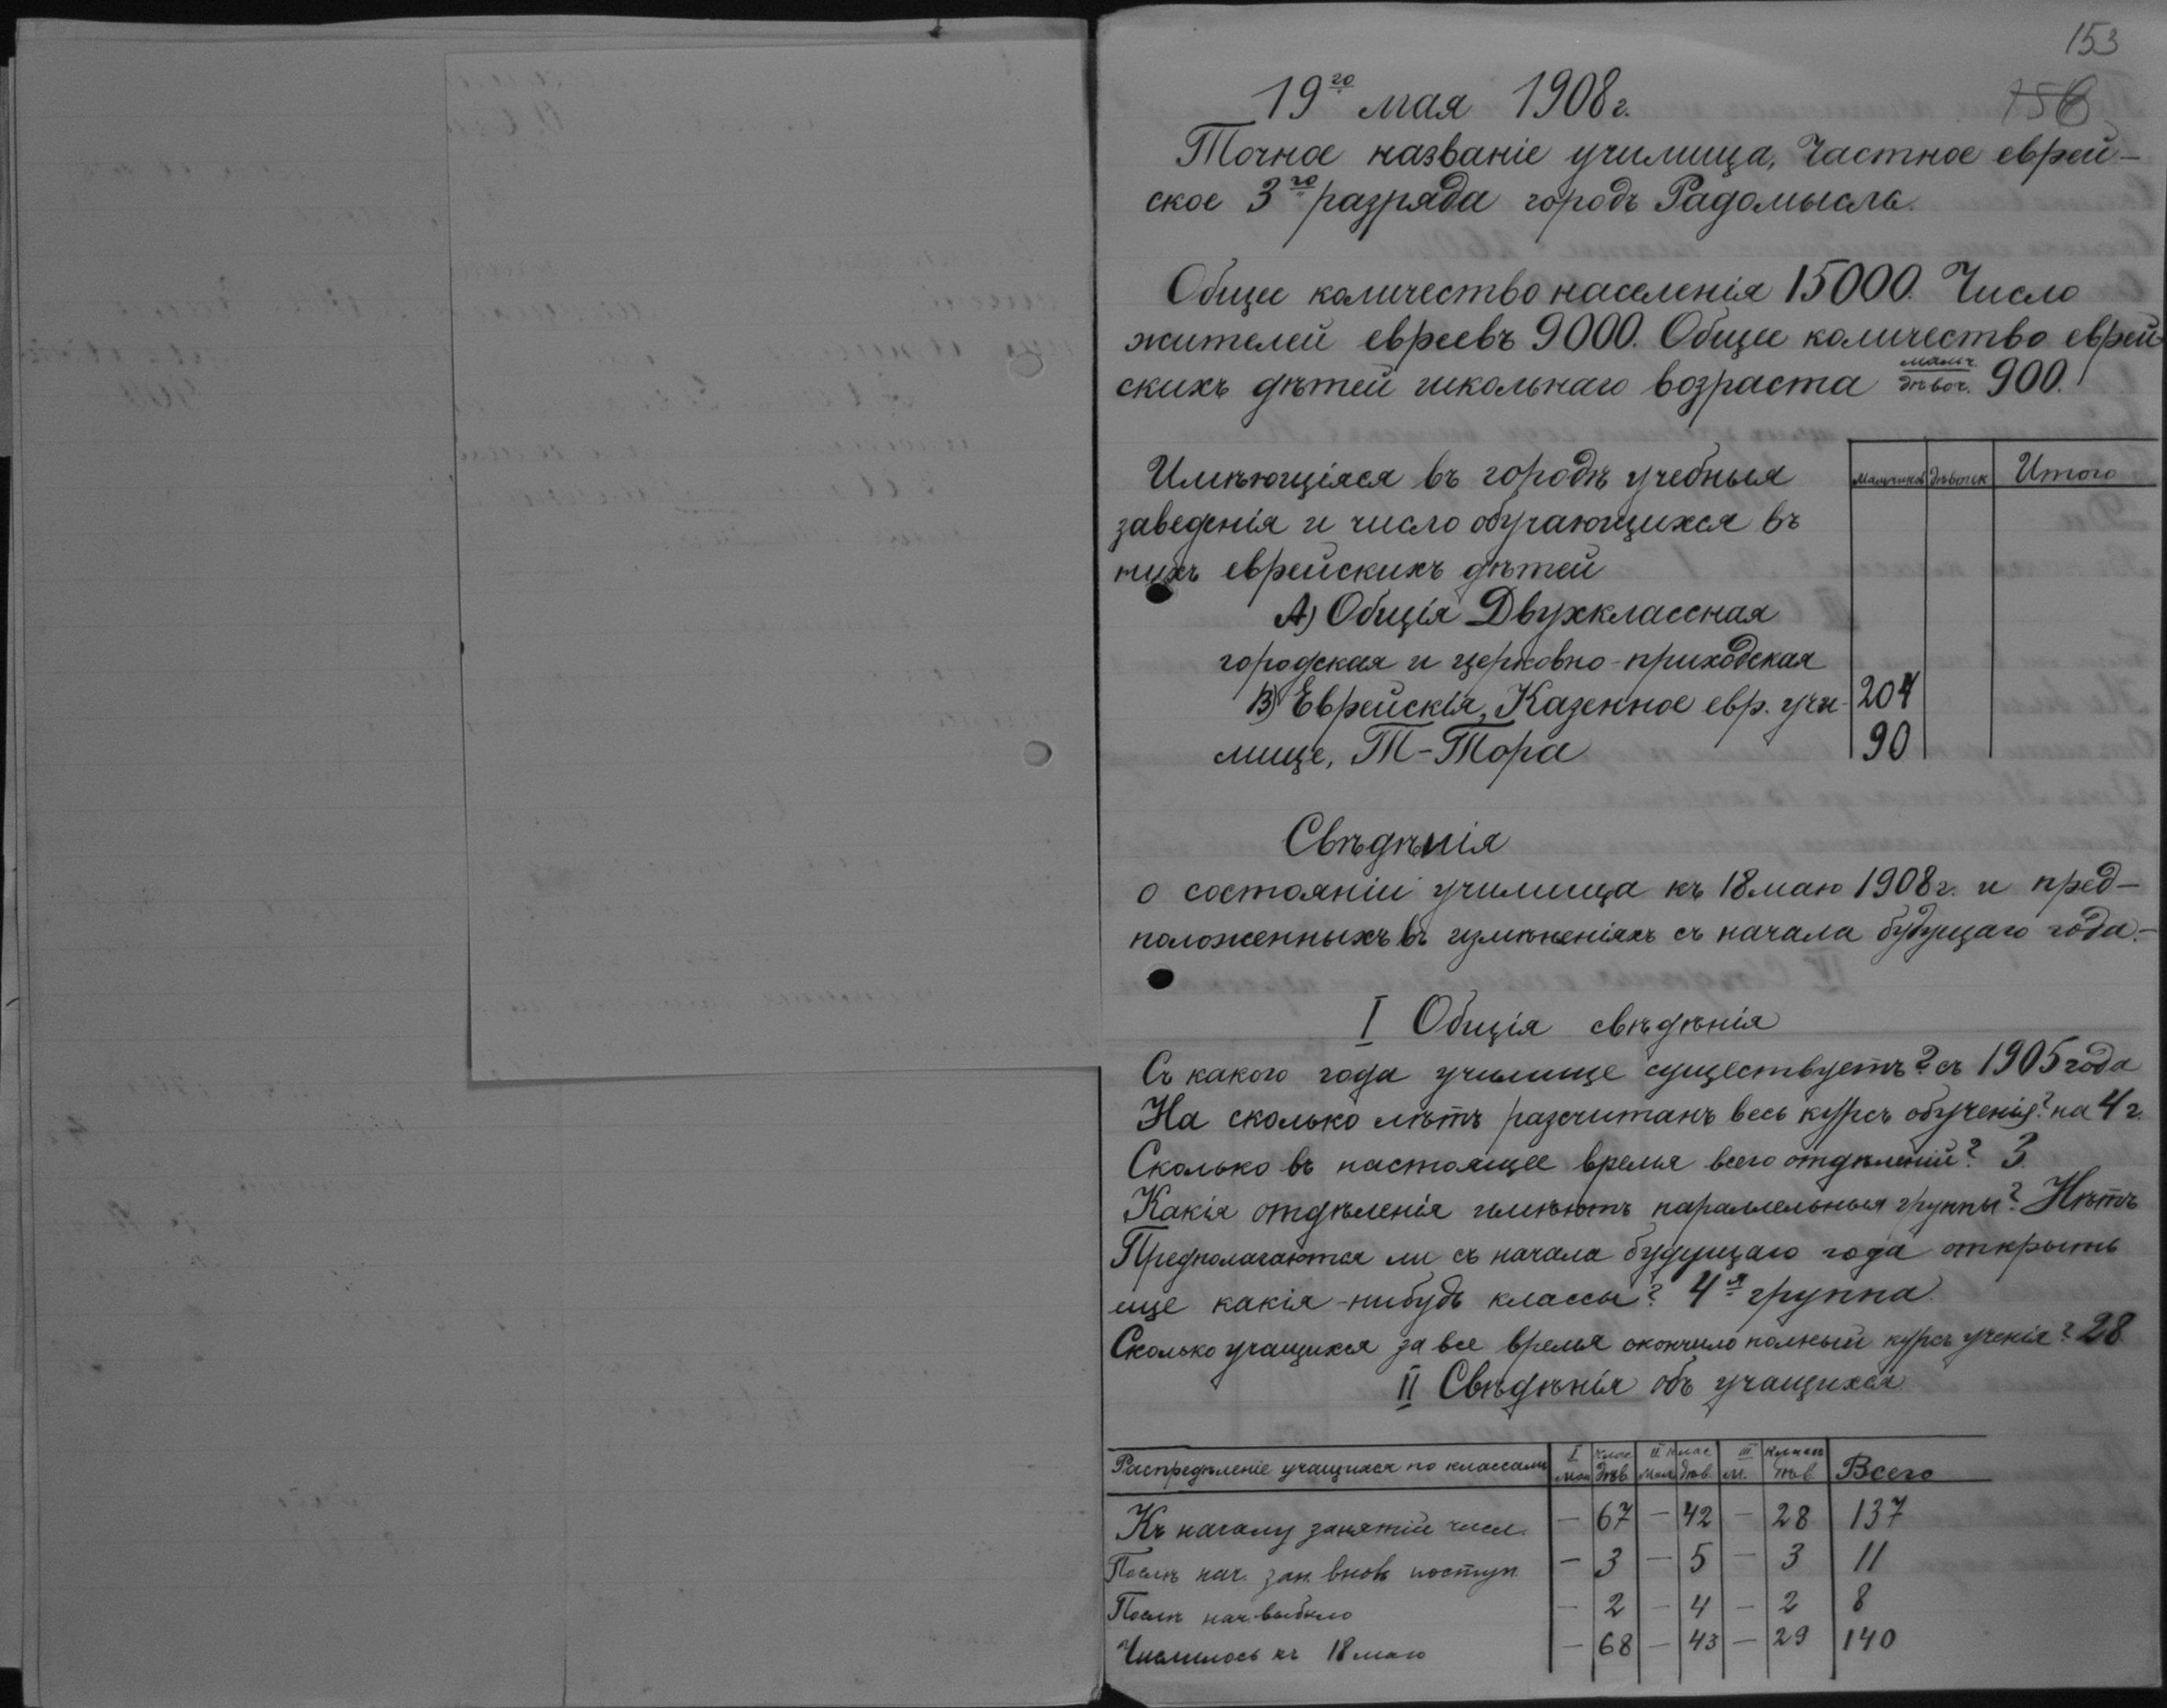 153
156
19го мая 1908 г.
Точное названіе училища, Частное еврей-
ское 3го разряда городъ Радомысль.
Общее количество населенія 15000. Число
жителей евреевъ 9000. Общее количество еврей-
скихъ дѣтей школьнаго возраста мальч. дѣвоч. 900.
Имѣющіяся въ городѣ учебныя мальчиковъ дѣвочек Итого
заведенія и число обучающихся въ
нихъ еврейскихъ дѣтей
А) Общія Двухклассная
городская и церковно-приходская
В) Еврейскія, Казенное евр. учи- 204
лище, Т-Тора 90
Свѣдѣнія
о состояніи училища къ 18 маю 1908 г. и пред-
положенныхъ въ измѣненіяхъ съ начала будущаго года.-
I Общія свѣдѣнія
Съ какого года училище существуетъ? съ 1905 года
На сколько лѣтъ разсчитанъ весь курсъ обученія? на 4 г.
Сколько въ настоящее время всего отдѣленій? 3
Какія отдѣленія имѣютъ параллельныя группы? Нѣтъ
Предполагаются ли съ начала будущаго года открыть
еще какія-нибудь классы? 4я группа.
Сколько учащихся за все время окончило полный курсъ ученія? 28
II Свѣдѣнія объ учащихся
Распредѣленіе учащихся по классамъ I клас мал дѣв II клас мал дѣв. III классъ м. дѣв Всего
Къ началу занятій числ. — 67 — 42 — 28 137
Послѣ нач. зан. вновь поступ. — 3 — 5 — 3 11
Послѣ нач. выбыло — 2 — 4 — 2 8
Числилось къ 18 маю — 68 — 43 — 29 140